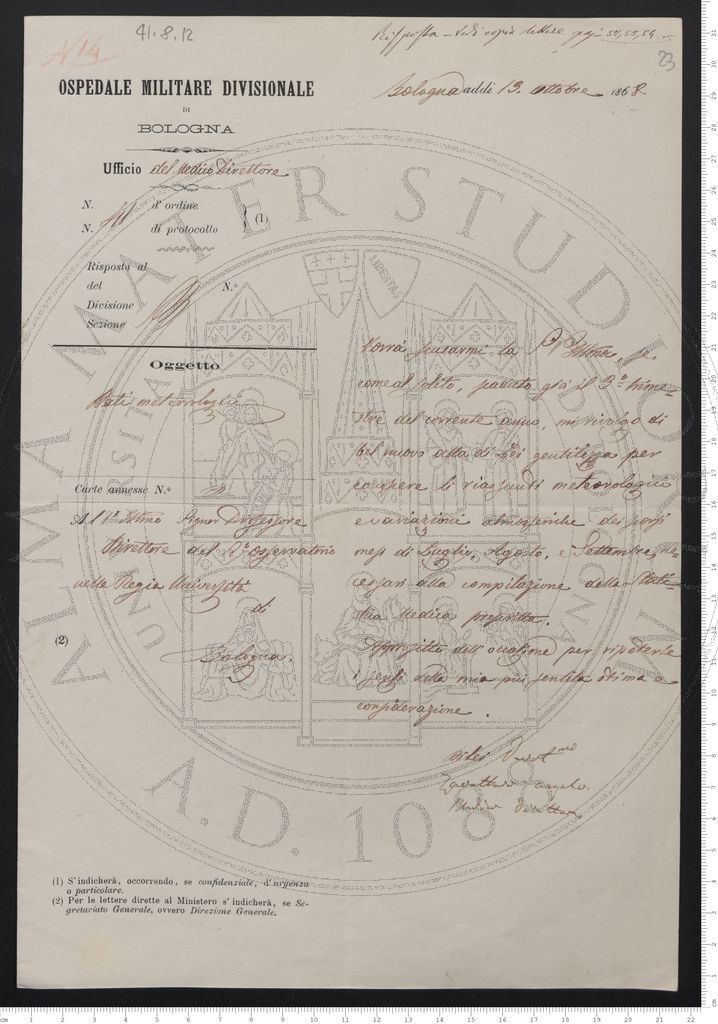 41.8.12
Risposta - Vedi copia lettere pag. 52, 53, 54
N 14
23
OSPEDALE MILITARE DIVISIONALE
DI
BOLOGNA
Bologna addì 13 ottobre 1868
Ufficio del Medico Direttore
N. d'ordine
N. di protocollo
(1)
Risposta al
del
Divisione
Sezione
N.º
Oggetto
Dati meteorologici
Carte annesse N.º
All' Ill.mo Signor Professore
Direttore del R.º osservatorio
nella Regia Università
di
(2)
Bologna.
Vorrà scusarmi la S. V. Ill.ma, se
come al solito, passato già il 3.º trime-
stre del corrente anno, mi rivolgo di
bel nuovo alla di Lei gentilezza per
conoscere li riassunti meteorologici
e variazioni atmosferiche dei scorsi
mesi di Luglio, Agosto, e Settembre, ne-
cessari alla compilazione della Stati-
stica Medica prescritta.
Approfitto dell'occasione per ripeterle
i sensi della mia più sentita stima e
considerazione.
Medico Direttore
(1) S'indicherà, occorrendo, se confidenziale, d'urgenza
o particolare.
(2) Per le lettere dirette al Ministero s'indicherà, se Se-
gretariato Generale, ovvero Direzione Generale.
ALMA MATER STUDIORUM
A.D. 1088
LIBERTAS